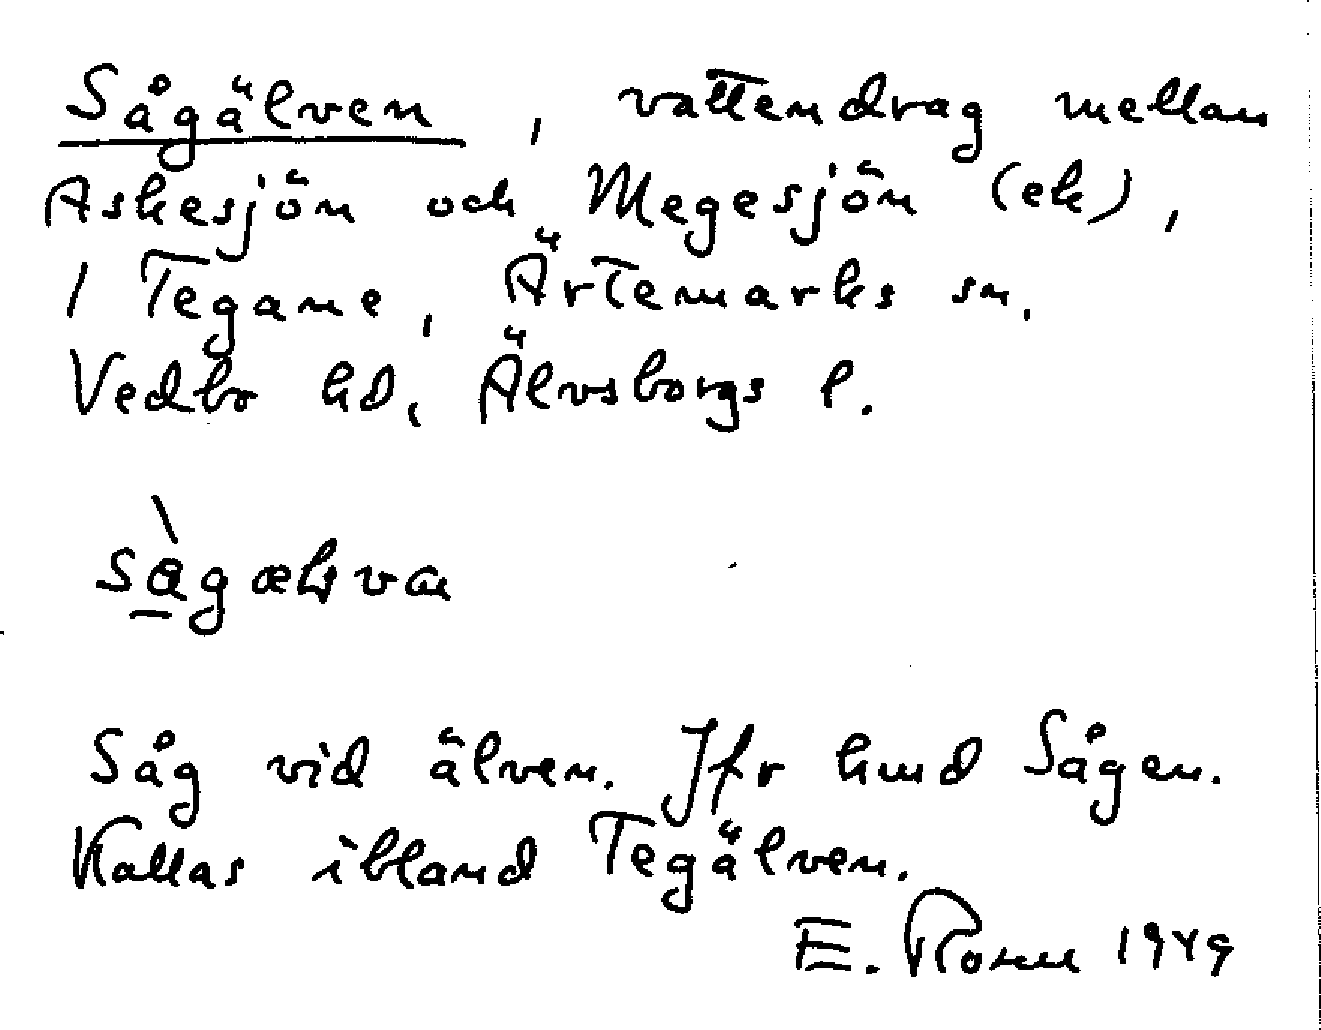 Sågälven, vattendrag mellan
Askesjön och Megesjön (ek),
i Tegane, Ärtemarks sn.
Vedbo hd, Älvsborgs l.
Såg vid älven. Jfr hmd Sågen.
Kallas ibland Tegälven.
E. Rosell 1949